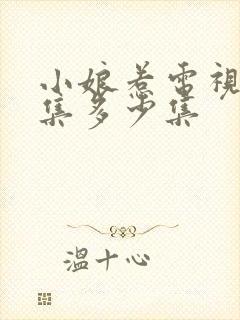 小娘惹電視
集多少集
溫十心